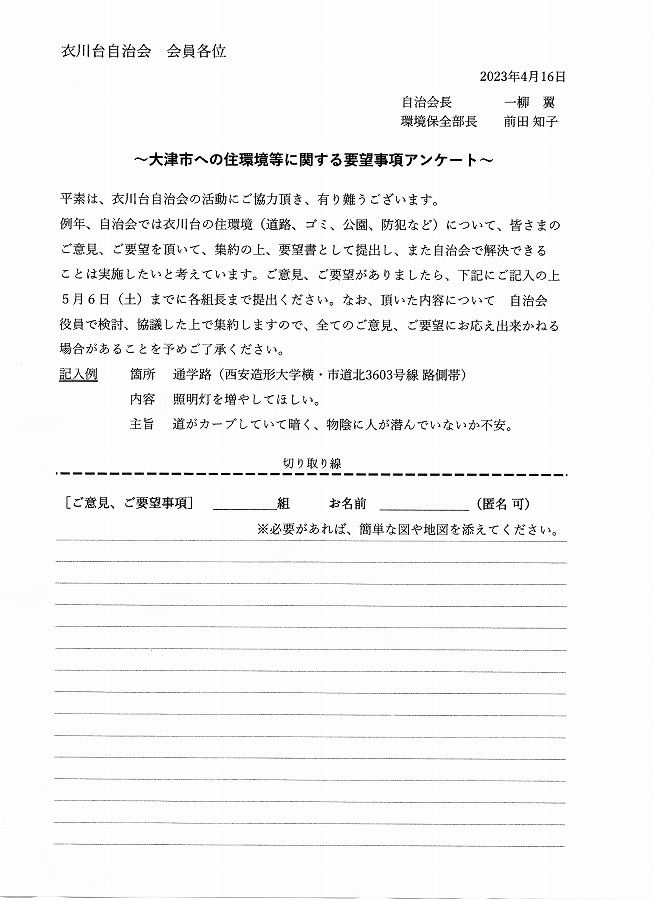 衣川台自治会　会員各位
2023年4月16日
自治会長　　　一柳　翼
環境保全部長　　前田 知子
～大津市への住環境等に関する要望事項アンケート～
平素は、衣川台自治会の活動にご協力頂き、有り難うございます。
例年、自治会では衣川台の住環境（道路、ゴミ、公園、防犯など）について、皆さまの
ご意見、ご要望を頂いて、集約の上、要望書として提出し、また自治会で解決できる
ことは実施したいと考えています。ご意見、ご要望がありましたら、下記にご記入の上
５月６日（土）までに各組長まで提出ください。なお、頂いた内容について　自治会
役員で検討、協議した上で集約しますので、全てのご意見、ご要望にお応え出来かねる
場合があることを予めご了承ください。
記入例　　箇所　通学路（西安造形大学横・市道北3603号線 路側帯）
内容　照明灯を増やしてほしい。
主旨　道がカーブしていて暗く、物陰に人が潜んでいないか不安。
切り取り線
［ご意見、ご要望事項］　＿＿＿＿＿組　　　お名前　＿＿＿＿＿＿＿（匿名 可）
※必要があれば、簡単な図や地図を添えてください。